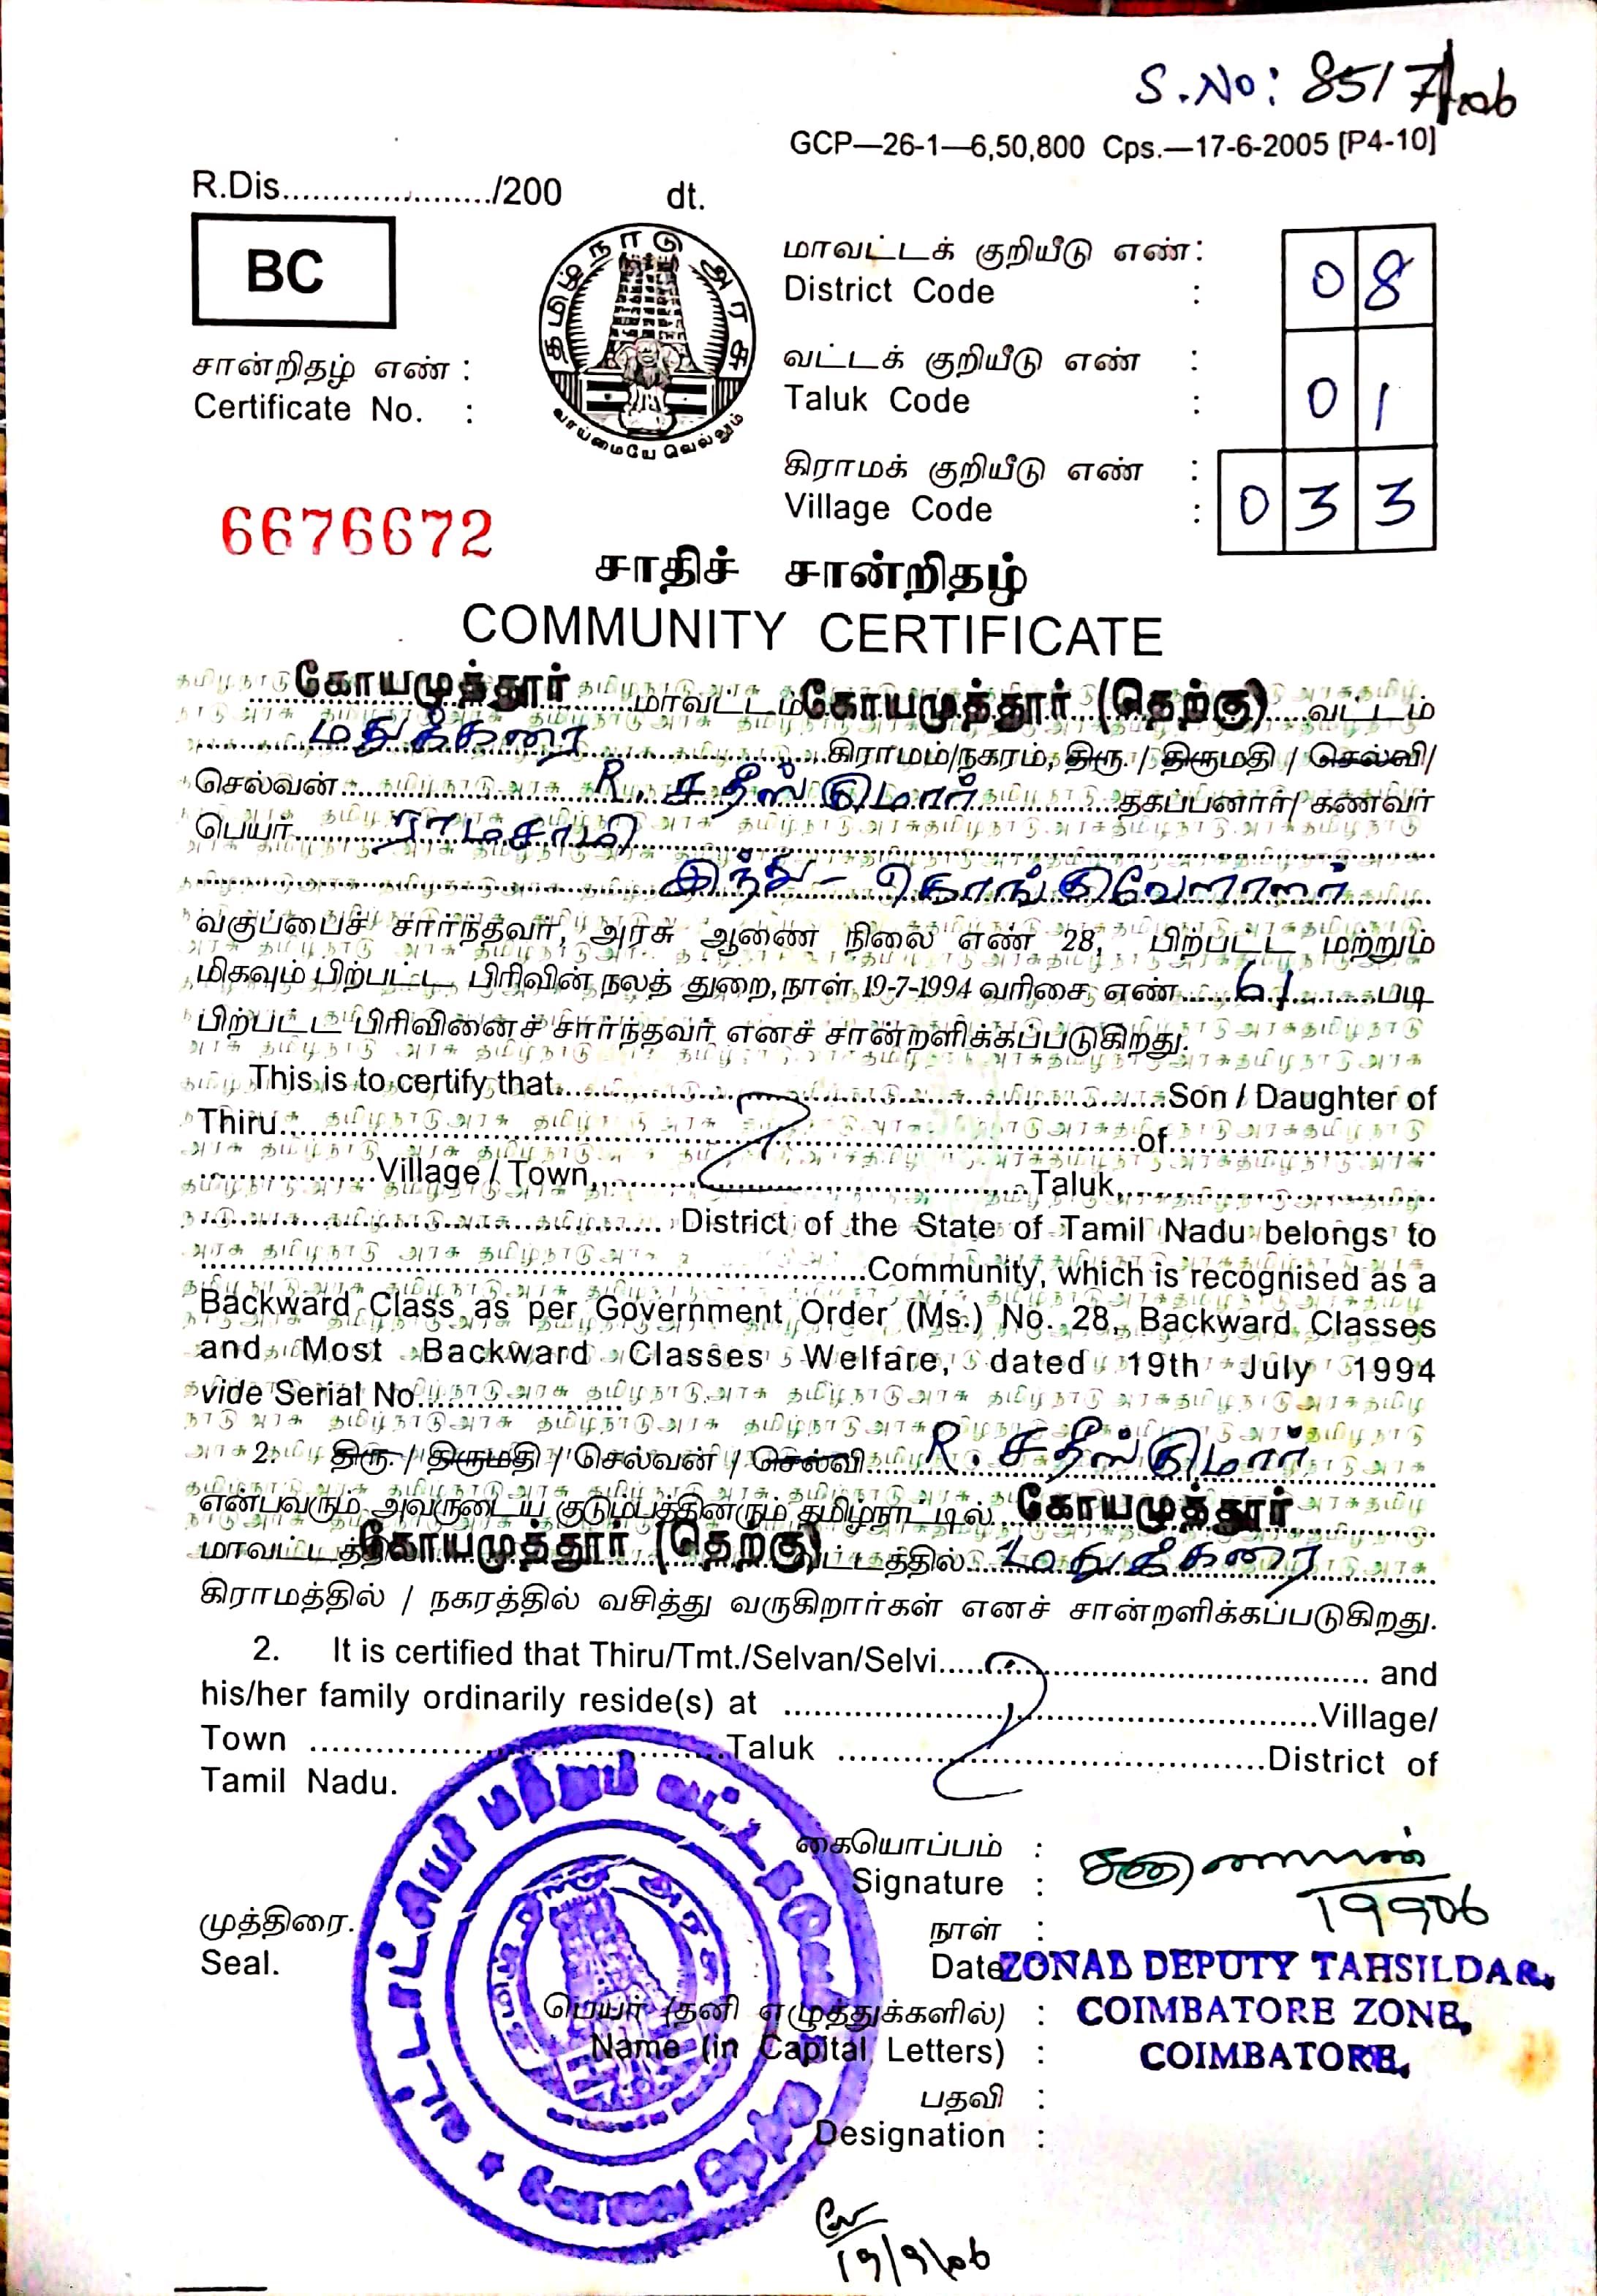 S.No: 8517
GCP—26-1—6,50,800 Cps.—17-6-2005 [P4-10]
R.Dis....................../200 dt.
BC
தமிழ்நாடு அரசு
வாய்மையே வெல்லும்
மாவட்டக் குறியீடு எண் :
District Code : 08
வட்டக் குறியீடு எண் :
Taluk Code : 01
கிராமக் குறியீடு எண் :
Village Code : 033
சான்றிதழ் எண் :
Certificate No. :
6676672
சாதிச் சான்றிதழ்
COMMUNITY CERTIFICATE
கோயமுத்தூர் மாவட்டம் கோயமுத்தூர் (தெற்கு) வட்டம்
மதுக்கரை கிராமம்/நகரம், திரு. / திருமதி / செல்வி/
செல்வன் R. சதீஸ்குமார் தகப்பனார்/ கணவர்
பெயர் ராமசாமி
இந்து - கொங்குவேளாளர்
வகுப்பைச் சார்ந்தவர், அரசு ஆணை நிலை எண் 28, பிற்பட்ட மற்றும்
மிகவும் பிற்பட்ட பிரிவின் நலத் துறை, நாள் 19-7-1994 வரிசை எண் 61 படி
பிற்பட்ட பிரிவினைச் சார்ந்தவர் எனச் சான்றளிக்கப்படுகிறது.
This is to certify that..............................Son / Daughter of
Thiru..............................of..............................
....................Village / Town,....................Taluk,....................
.............................. District of the State of Tamil Nadu belongs to
..............................Community, which is recognised as a
Backward Class as per Government Order (Ms.) No. 28, Backward Classes
and Most Backward Classes Welfare, dated 19th July 1994
vide Serial No....................
2. திரு. / திருமதி / செல்வன் / செல்வி R. சதீஸ்குமார்
என்பவரும் அவருடைய குடும்பத்தினரும் தமிழ்நாட்டில் கோயமுத்தூர்
மாவட்டத்தில் கோயமுத்தூர் (தெற்கு) வட்டத்தில் மதுக்கரை
கிராமத்தில் / நகரத்தில் வசித்து வருகிறார்கள் எனச் சான்றளிக்கப்படுகிறது.
2. It is certified that Thiru/Tmt./Selvan/Selvi.............................. and
his/her family ordinarily reside(s) at ..............................Village/
Town ..............................Taluk ..............................District of
Tamil Nadu.
கையொப்பம் :
Signature :
19906
முத்திரை.
Seal.
நாள் :
Date
ZONAL DEPUTY TAHSILDAR,
பெயர் (தனி எழுத்துக்களில்) : COIMBATORE ZONE,
Name (in Capital Letters) : COIMBATORE,
பதவி :
Designation :
19/9/06